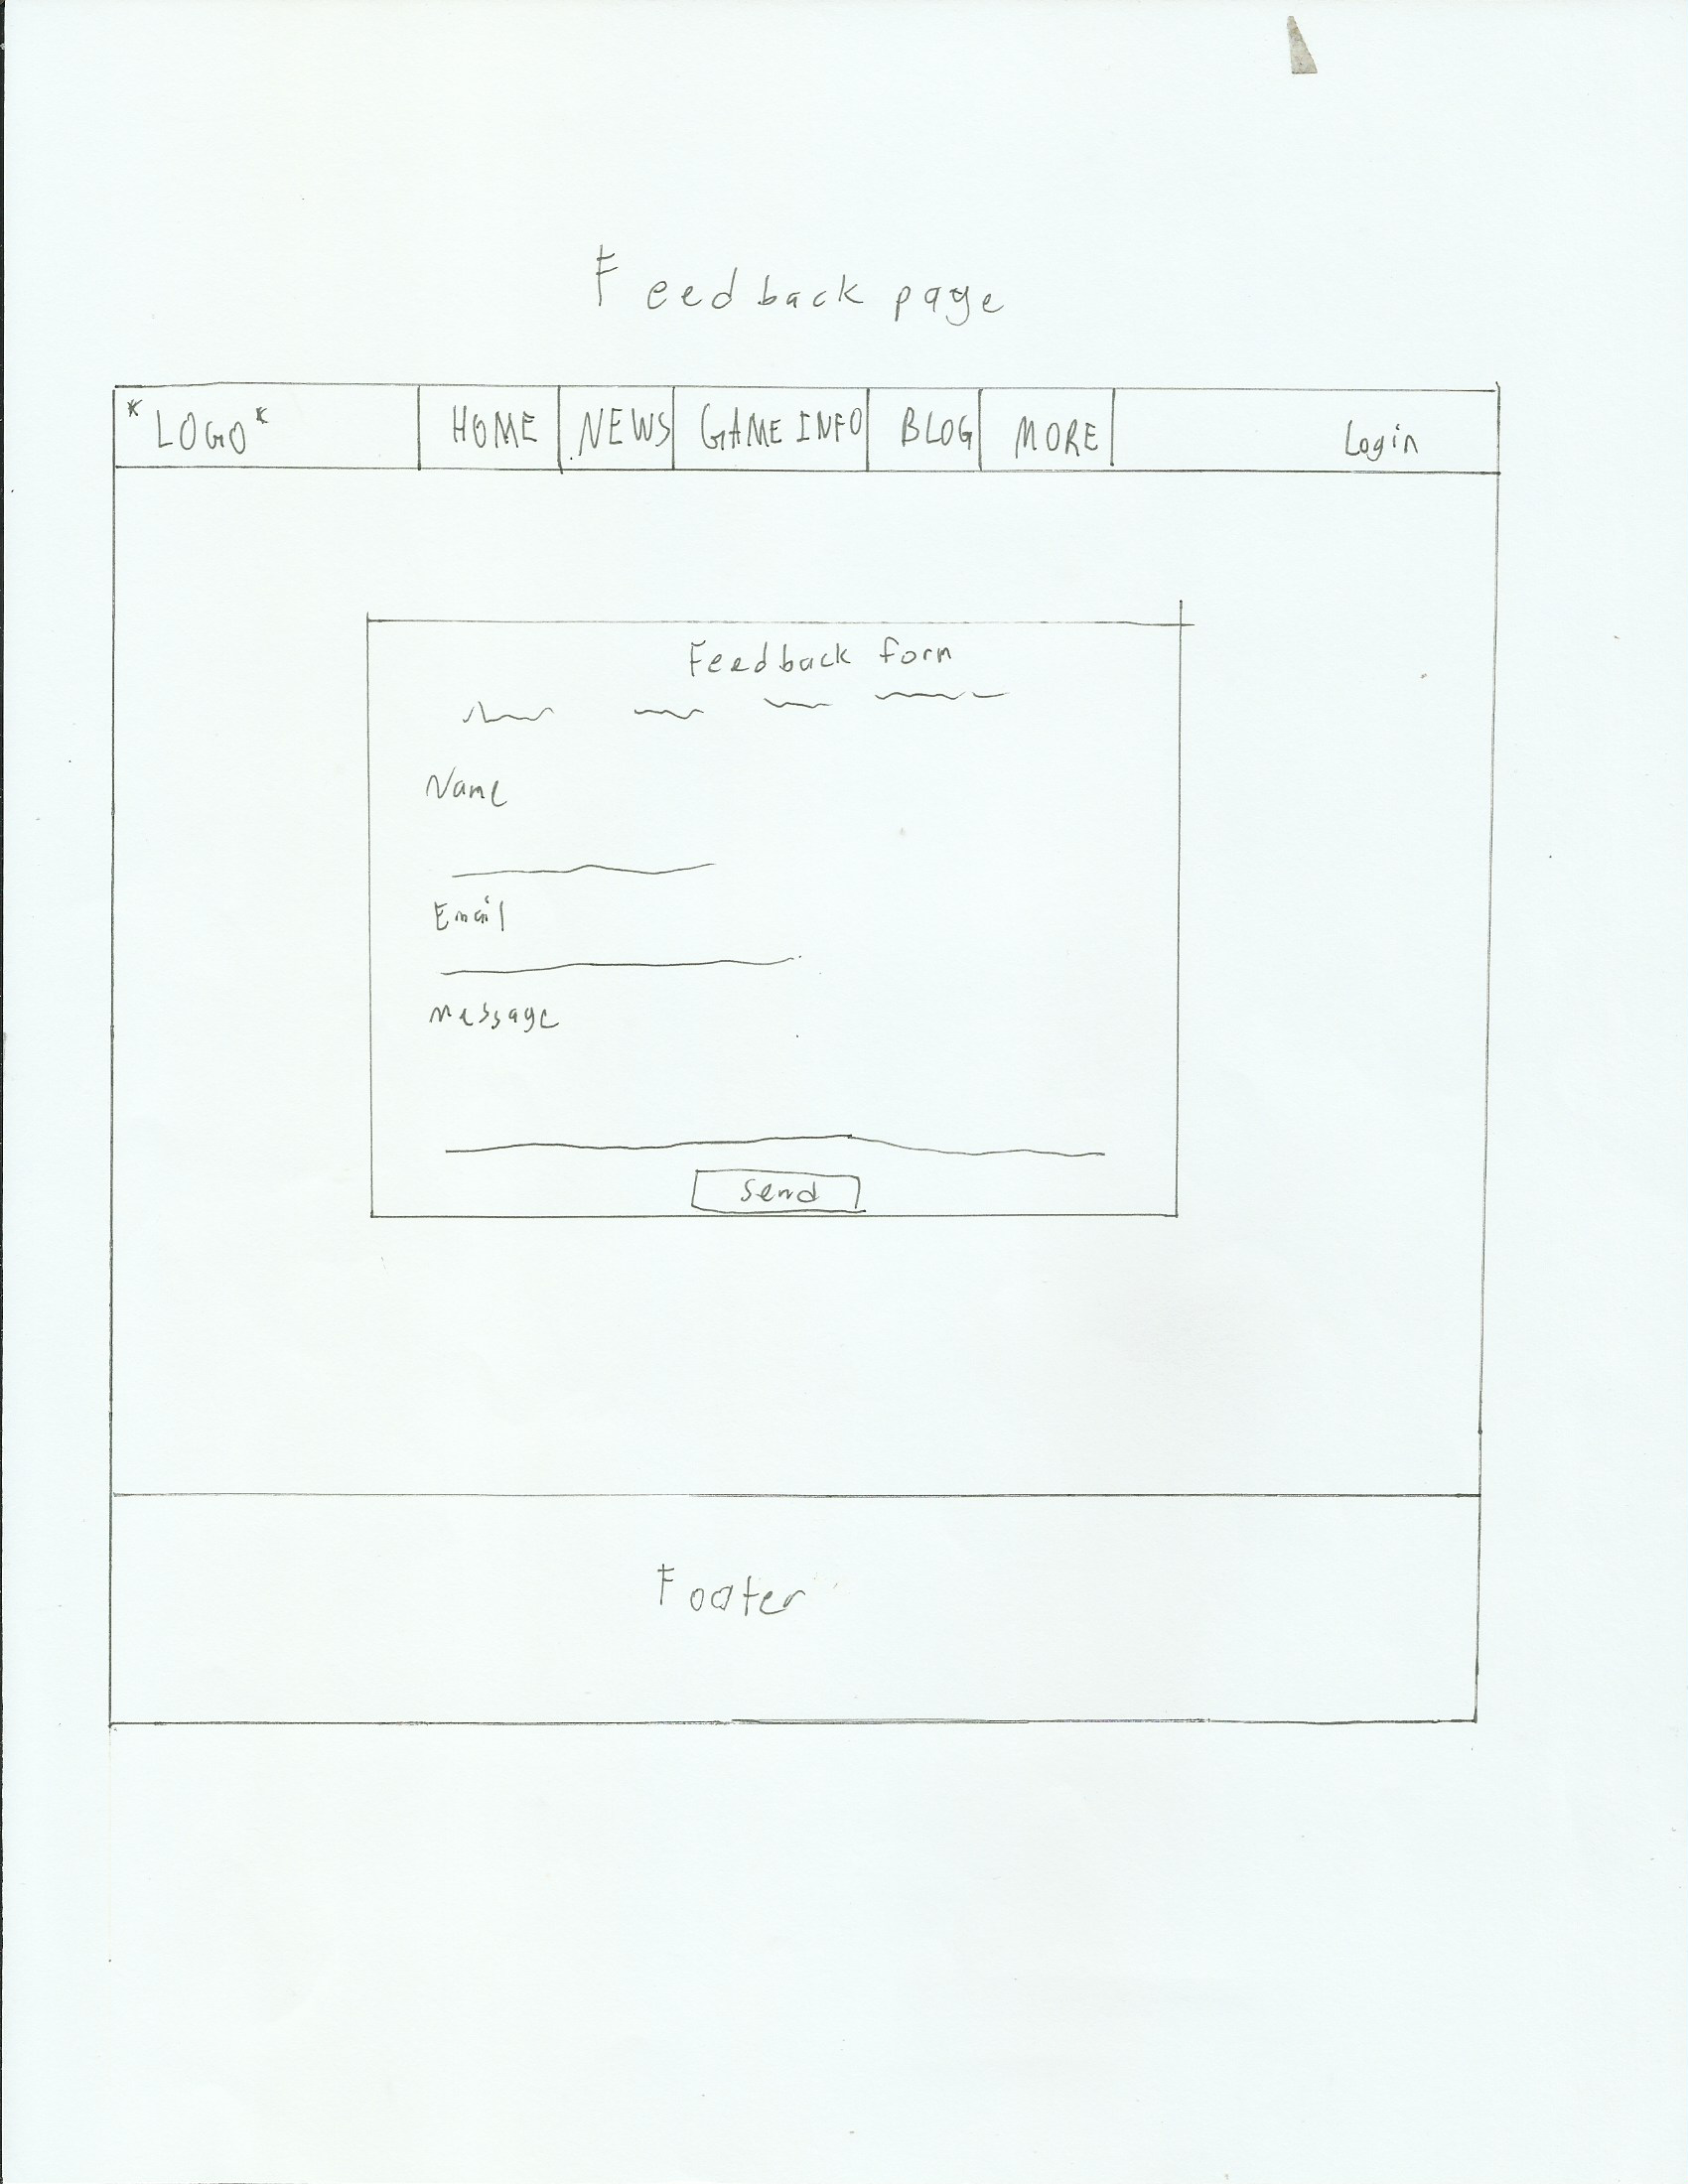 Feedback page
*LOGO* HOME NEWS GAME INFO BLOG MORE Login
Feedback form
Name
Email
Message
Send
Footer